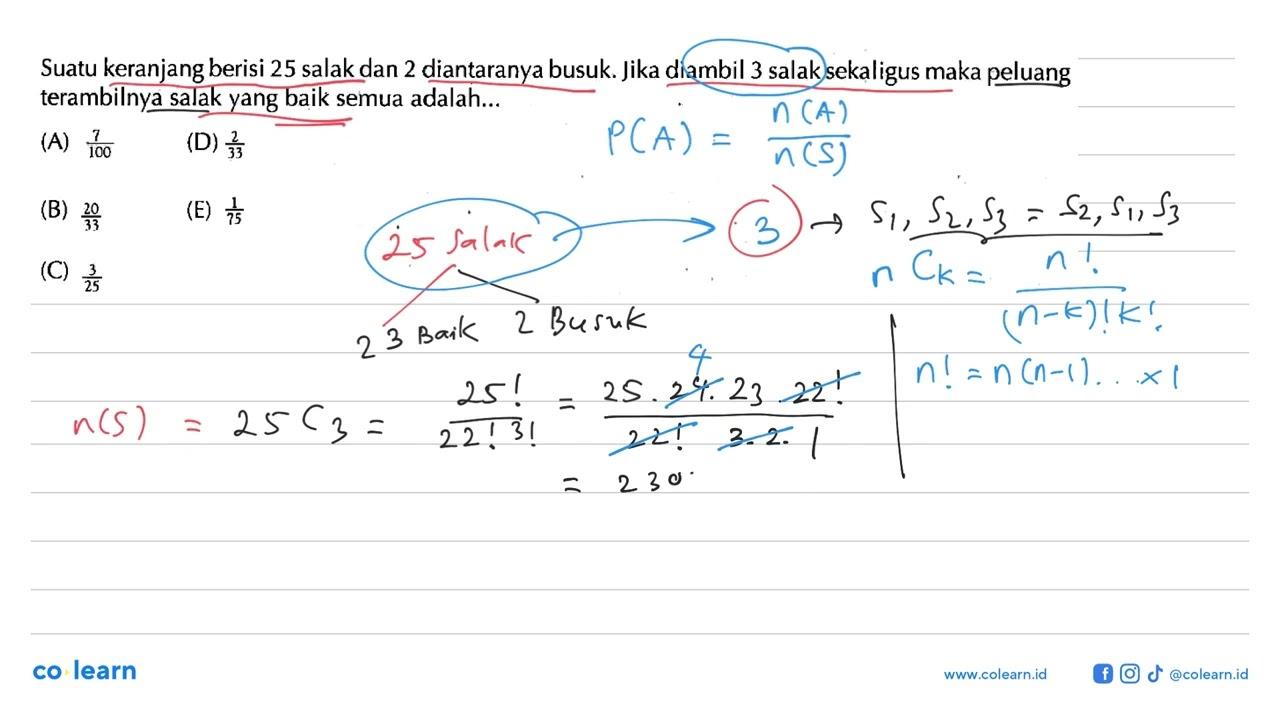 Suatu keranjang berisi 25 salak dan 2 diantaranya busuk. Jika diambil 3 salak sekaligus maka peluang
terambilnya salak yang baik semua adalah...
(A) 7/100 (D) 2/33
(B) 20/33 (E) 1/75
(C) 3/25
P(A) = n(A)/n(S)
25 Salak → 3 → S1, S2, S3 = S2, S1, S3
23 Baik 2 Busuk
nCk = n!/(n-k)!k!
n! = n(n-1)...×1
n(S) = 25C3 = 25!/22!3! = 25.24.23.22!/22! 3.2.1
4
= 230
co learn
www.colearn.id @colearn.id